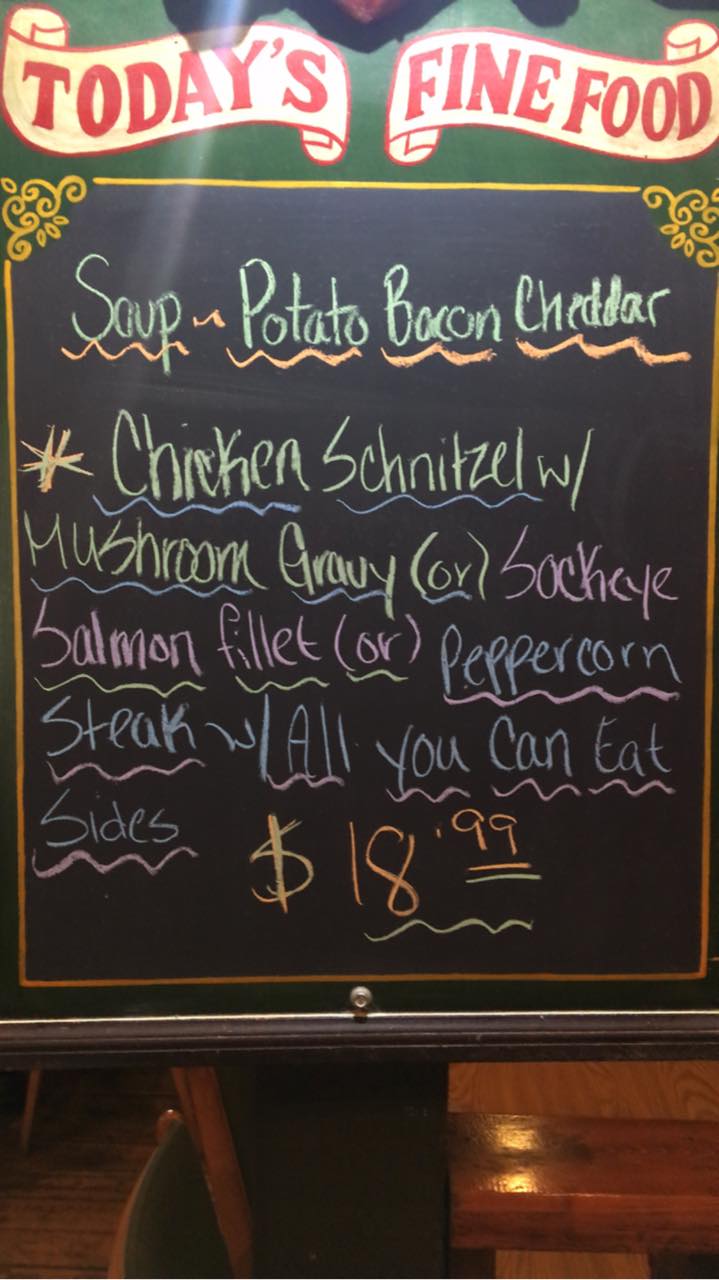 TODAY'S FINE FOOD
Soup ~ Potato Bacon Cheddar
* Chicken Schnitzel w/
Mushroom Gravy (or) Sockeye
Salmon fillet (or) Peppercorn
Steak w/ All you Can Eat
Sides $ 18.99